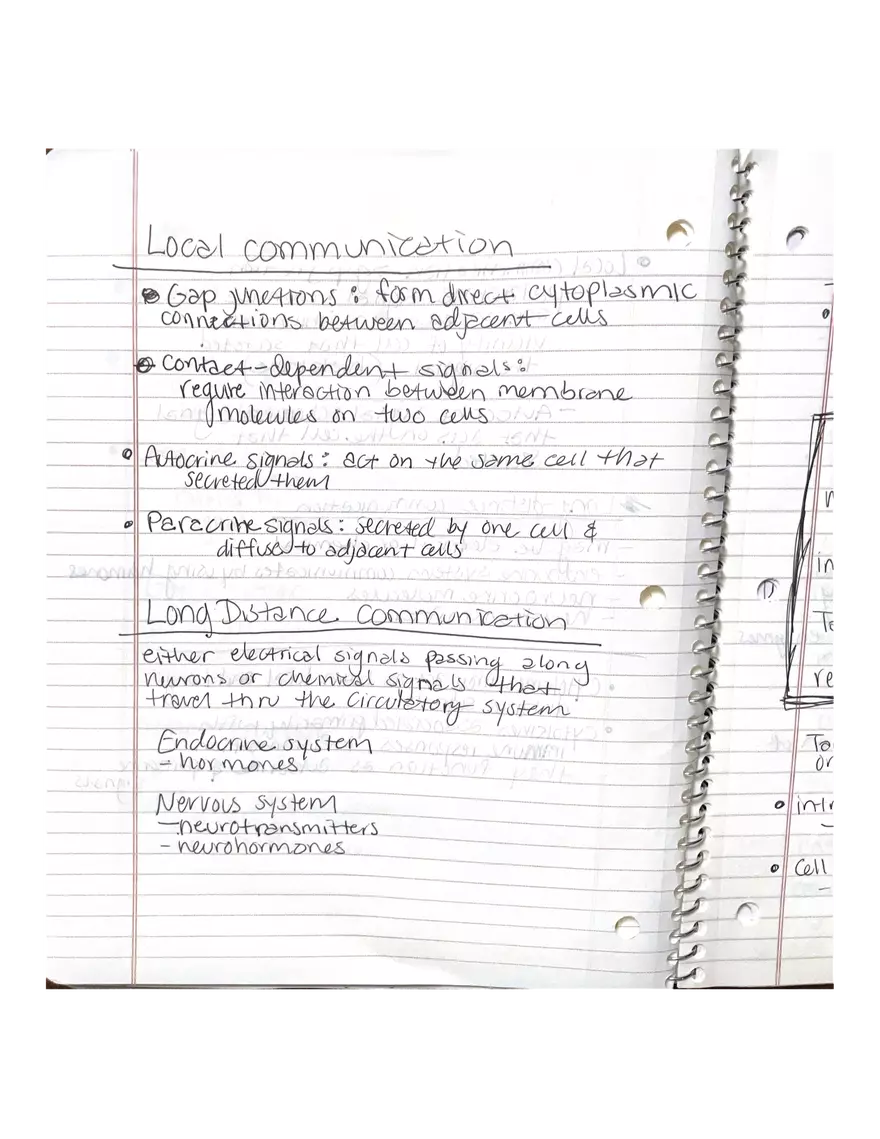 Local communication
Gap junctions: form direct cytoplasmic
connections between adjacent cells
Contact-dependent signals:
require interaction between membrane
molecules on two cells
Autocrine signals: act on the same cell that
secreted them
Paracrine signals: secreted by one cell &
diffuse to adjacent cells
Long Distance Communication
either electrical signals passing along
neurons or chemical signals that
travel thru the circulatory system
Endocrine system
- hormones
Nervous system
- neurotransmitters
- neurohormones
in
re
To
or
Cell